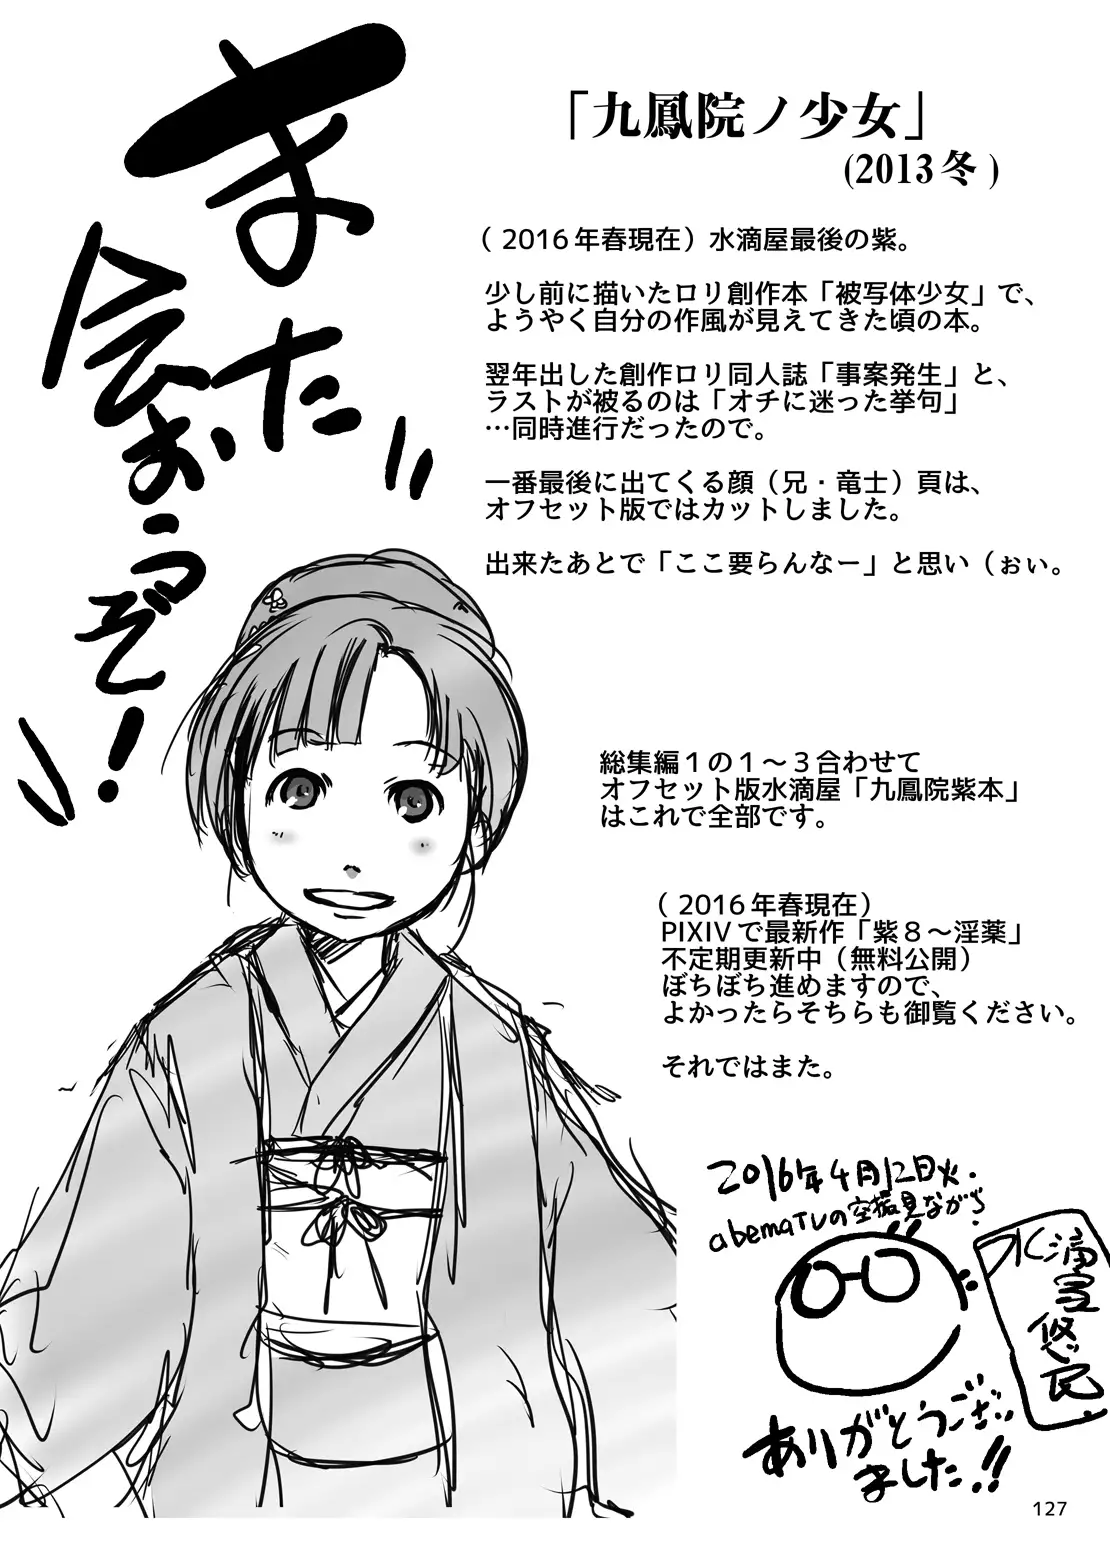 また
会おうぞ!
「九鳳院ノ少女」
(2013冬)
(2016年春現在)水滴屋最後の紫。
少し前に描いたロリ創作本「被写体少女」で、
ようやく自分の作風が見えてきた頃の本。
翌年出した創作ロリ同人誌「事案発生」と、
ラストが被るのは「オチに迷った挙句」
…同時進行だったので。
一番最後に出てくる顔(兄・竜士)頁は、
オフセット版ではカットしました。
出来たあとで「ここ要らんなー」と思い(ぉぃ。
総集編1の1～3合わせて
オフセット版水滴屋「九鳳院紫本」
はこれで全部です。
(2016年春現在)
PIXIVで最新作「紫8～淫薬」
不定期更新中(無料公開)
ぼちぼち進めますので、
よかったらそちらも御覧ください。
それではまた。
2016年4月12日火.
abemaTVの空振見ながら
水滴屋悠民
ありがとうござい
ました!!
127